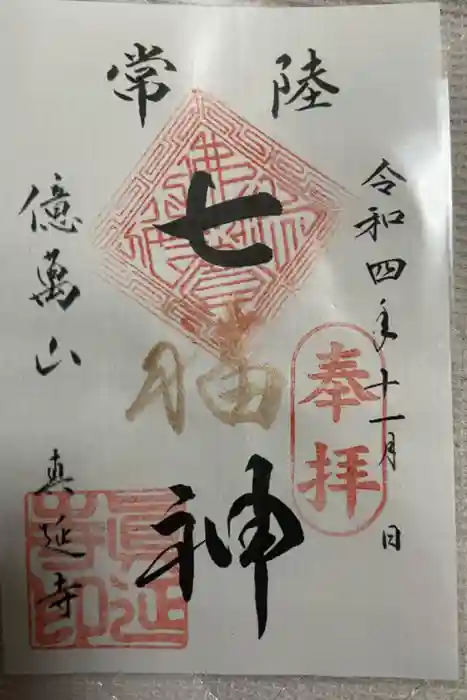 常陸
令和四年十一月 日
奉拝
七福神
億萬山 真延寺
眞延寺印